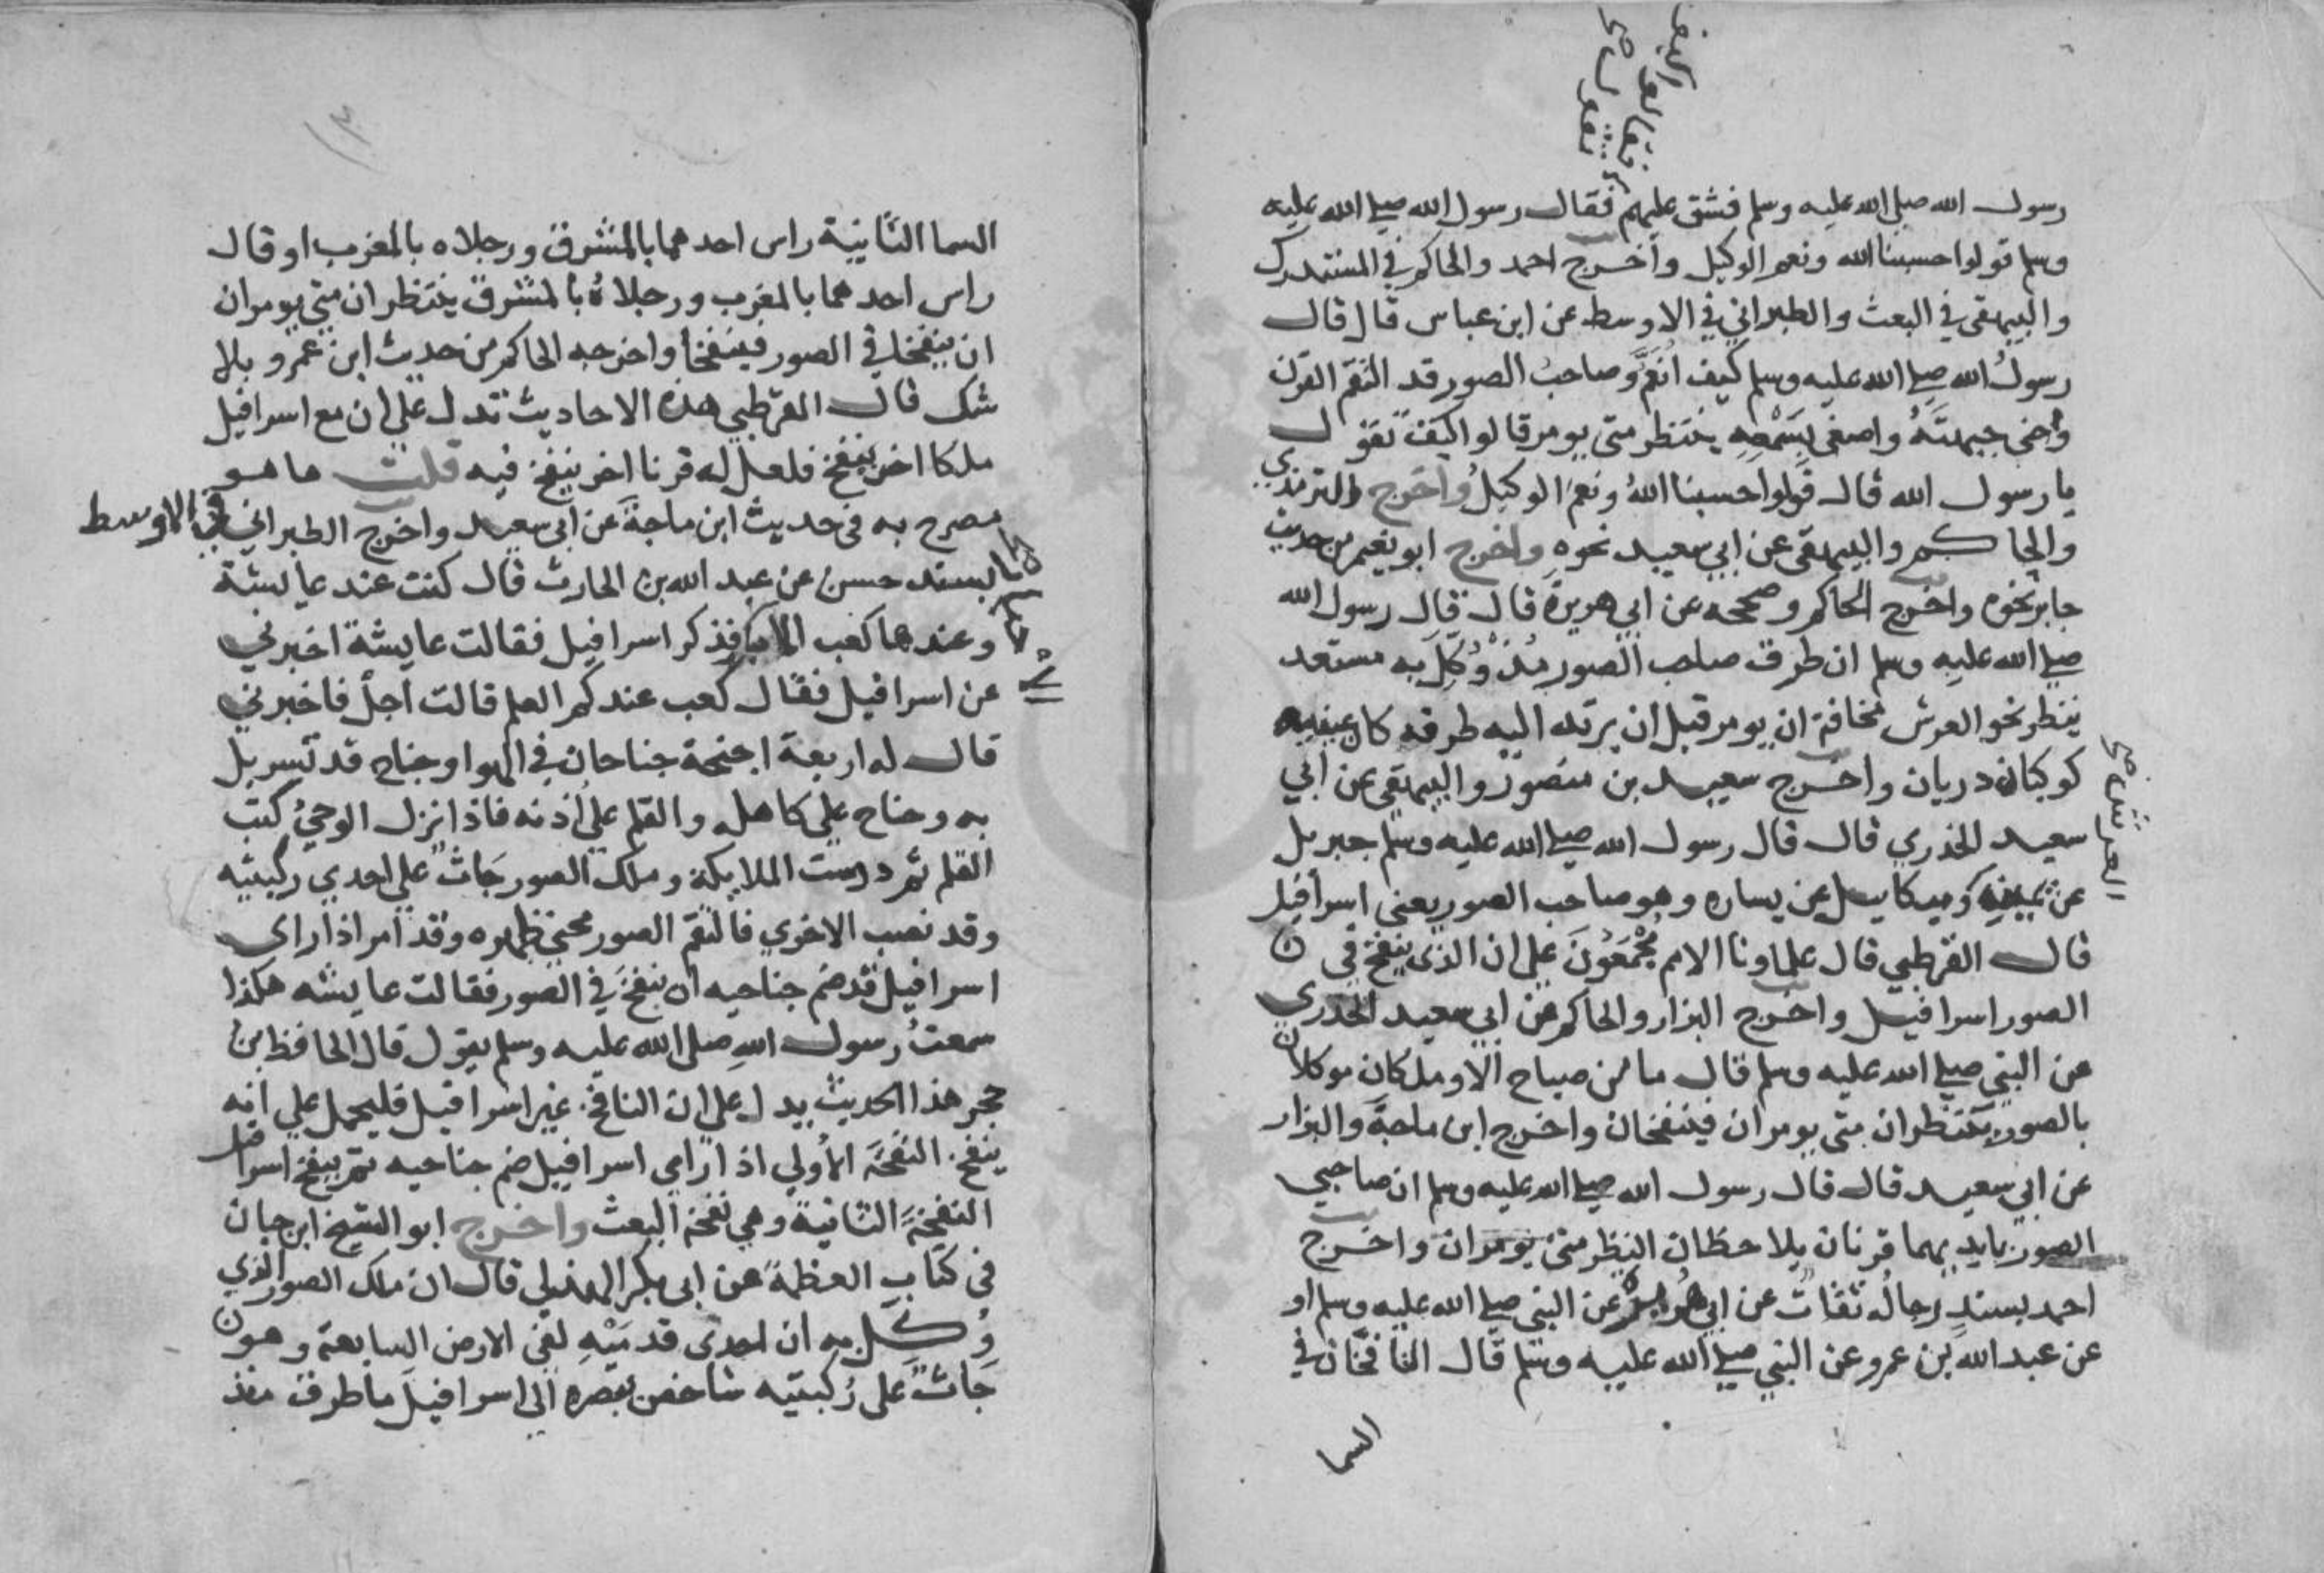 رسول الله صلى الله عليه وسلم فشق عليهم فقال رسول الله صلى الله عليه
وسلم قولوا حسبنا الله ونعم الوكيل وأخرج احمد والحاكم في المستدرك
والبيهقي في البعث والطبراني في الاوسط عن ابن عباس قال قال
رسول الله صلى الله عليه وسلم كيف انعم وصاحب الصور قد التقم القرن
وحنى جبهته واصغى بسمعه ينتظر متى يومر قالوا كيف نقول
يا رسول الله قال قولوا حسبنا الله ونعم الوكيل وأخرج والترمذي
والحاكم والبيهقي عن ابي سعيد نحوه واخرج ابو نعيم من حديث
جابر نحوه واخرج الحاكم وصححه عن ابي هريرة قال قال رسول الله
صلى الله عليه وسلم ان طرف صاحب الصور مذ وُكِّل به مستعد
ينظر نحو العرش مخافة ان يومر قبل ان يرتد اليه طرفه كان عينيه
كوكبان دريان واخرج سعيد بن منصور والبيهقي عن ابي
سعيد الخدري قال قال رسول الله صلى الله عليه وسلم جبريل
عن يمينه وميكاييل عن يساره وهو صاحب الصور يعني اسرافيل
قال القرطبي قال علماونا الامم مجمعون علي ان الذي ينفخ في
الصور اسرافيل واخرج البزار والحاكم عن ابي سعيد الخدري
عن النبي صلى الله عليه وسلم قال ما من صباح الا وملكان موكلان
بالصور ينتظران متى يومران فينفخان واخرج ابن ماجة والبزار
عن ابي سعيد قال قال رسول الله صلى الله عليه وسلم ان صاحبي
الصور بايديهما قرنان يلاحظان النظر متى يومران واخرج
احمد بسند رجاله ثقات عن ابي هريرة عن النبي صلى الله عليه وسلم او
عن عبد الله بن عمرو عن النبي صلى الله عليه وسلم قال النافخان في
السما
العرش صح
السما الثانية راس احدهما بالمشرق ورجلاه بالمغرب او قال
راس احدهما بالمغرب ورجلاه بالمشرق ينتظران متى يومران
ان ينفخا في الصور فينفخا واخرجه الحاكم من حديث ابن عمرو بلا
شك قال القرطبي هذه الاحاديث تدل علي ان مع اسرافيل
ملكا اخر ينفخ فلعل له قرنا اخر ينفخ فيه قلت ما هو
مصرح به في حديث ابن ماجة عن ابي سعيد واخرج الطبراني في الاوسط
بسند حسن عن عبد الله بن الحارث قال كنت عند عايشة
وعندها كعب فذكر اسرافيل فقالت عايشة اخبرني
عن اسرافيل فقال كعب عندكم العلم قالت اجل فاخبرني
قال له اربعة اجنحة جناحان في الهوا وجناح قد تسربل
به وجناح علي كاهله والقلم علي اذنه فاذا نزل الوحي كتب
القلم ثم درست الملايكة وملك الصور جاث علي احدي ركبتيه
وقد نصب الاخري فالتقم الصور محني ظهره وقد امر اذا راى
اسرافيل قد ضم جناحيه ان ينفخ في الصور فقالت عايشه هكذا
سمعت رسول الله صلى الله عليه وسلم يقول قال الحافظ بن
حجر هذا الحديث يدل علي ان النافخ غير اسرافيل فليحمل علي انه
ينفخ النفخة الأولي اذا راي اسرافيل ضم جناحيه ثم ينفخ اسرافيل
النفخة الثانية وهي نفخة البعث واخرج ابو الشيخ ابن حبان
في كتاب العظمة عن ابي بكر الهذلي قال ان ملك الصور الذي
وُكِّل به ان احدى قدميه لفي الارض السابعة وهو
جاث على ركبتيه شاخص بصره الي اسرافيل ما طرف منذ